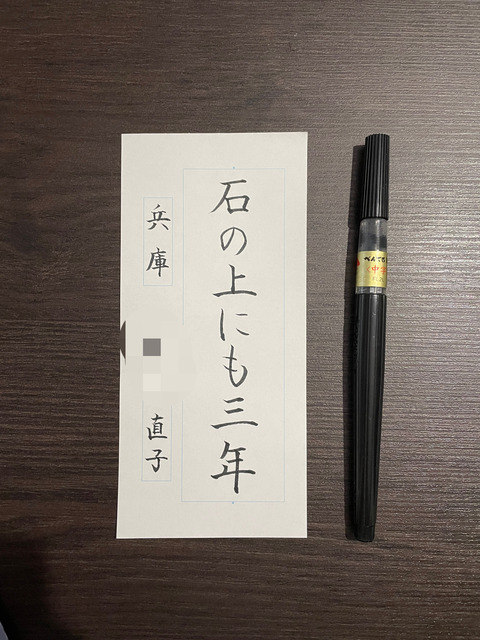 石の上にも三年
兵庫
直子
ぺんてる